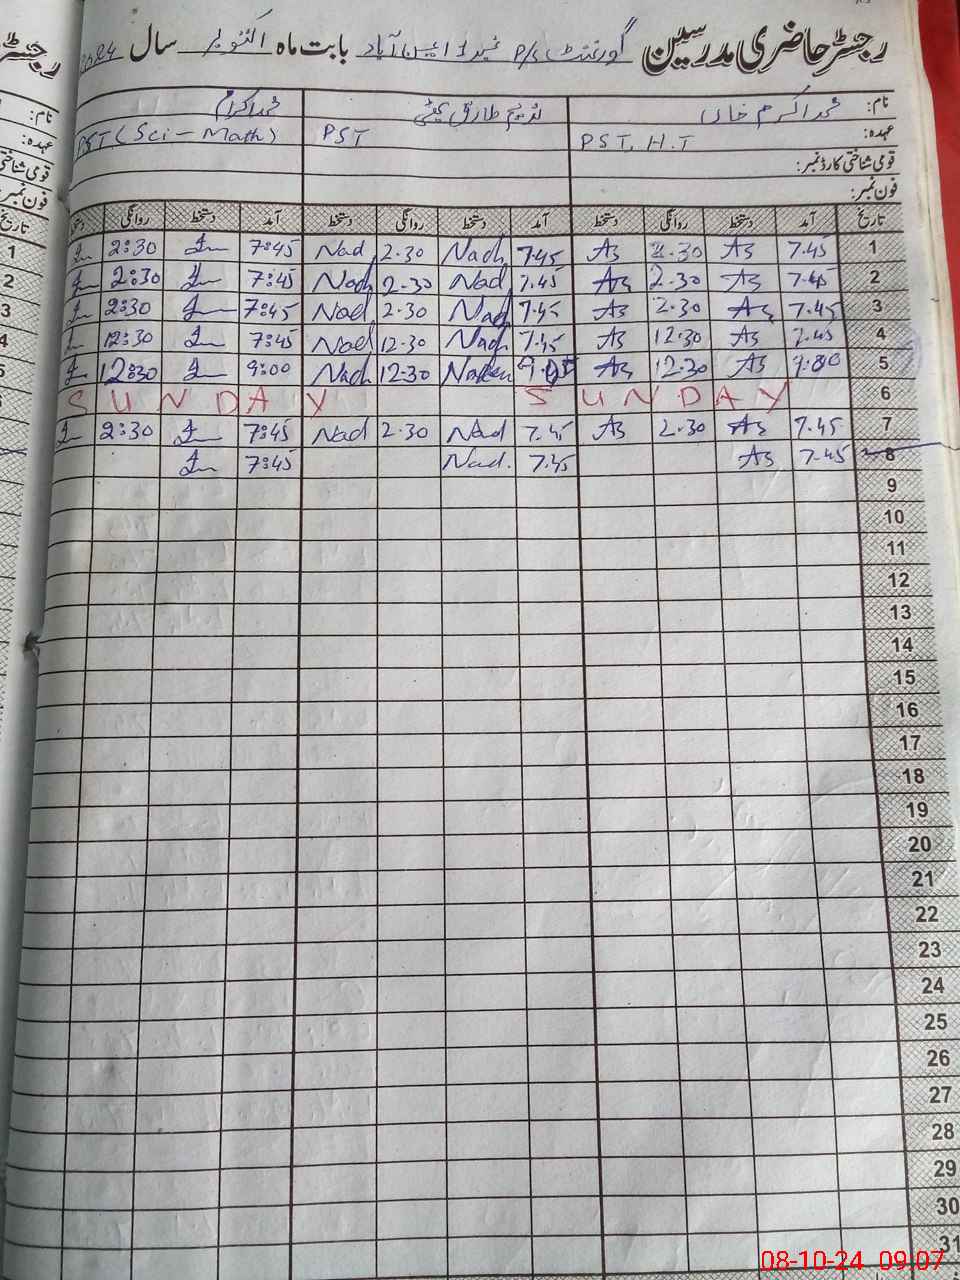 رجسٹر حاضری مدرسین گورنمنٹ P/S نمبر 1 ایسن آباد بابت ماہ اکتوبر سال 2024
نام: محمد اکرم خان محمد اکرام
عہدہ: PST, H.T PST PST (Sci - Math)
قومی شناختی کارڈ نمبر:
فون نمبر:
تاریخ آمد دستخط روانگی دستخط آمد دستخط روانگی دستخط آمد دستخط روانگی دستخط
1 7.45 As 2.30 As 7.45 Nad 2.30 Nad 7:45 2:30
2 7.45 As 2.30 As 7.45 Nad 2.30 Nad 7:45 2:30
3 7.45 As 2.30 As 7.45 Nad 2.30 Nad 7:45 2:30
4 7.45 As 12.30 As 7.45 Nad 12.30 Nad 7:45 12:30
5 9.00 As 12.30 As 9.05 12.30 Nad 9:00 12:30
6 SUNDAY SUNDAY
7 7.45 As 2.30 As 7.45 Nad 2.30 Nad 7:45 2:30
8 7.45 As 7.45 Nad. 7:45
9
10
11
12
13
14
15
16
17
18
19
20
21
22
23
24
25
26
27
28
29
30
31
08-10-24 09:07